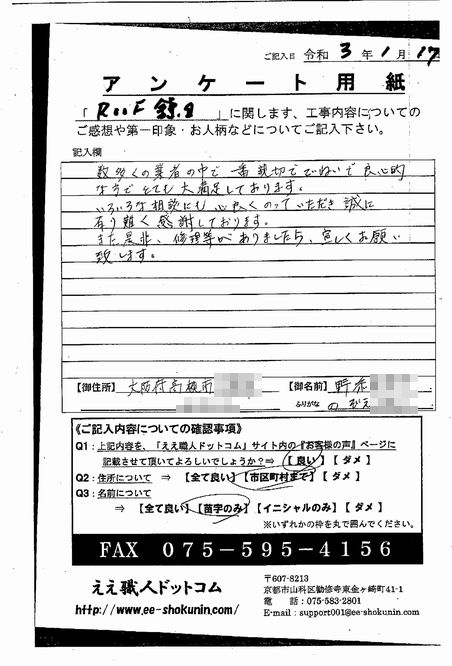 ご記入日 令和 3 年 1 月 17
アンケート用紙
「 ROOF 鎌田 」に関します、工事内容についての
ご感想や第一印象・お人柄などについてご記入下さい。
記入欄
数多くの業者の中で一番親切でていねいで良心的
な方でとても大満足しております。
いろいろな相談にも心良くのっていただき誠に
有り難く感謝しております。
また是非、修理等がありましたら、宜しくお願い
致します。
【御住所】 大阪府高槻市
【御名前】 野添
ふりがな のぞえ
《ご記入内容についての確認事項》
Q1:上記内容を、「ええ職人ドットコム」サイト内の『お客様の声』ページに
記載させて頂いてよろしいでしょうか?⇒ 【 良い 】 【 ダメ 】
Q2:住所について ⇒ 【全て良い】【市区町村まで】【 ダメ 】
Q3:名前について
⇒ 【全て良い】【苗字のみ】【イニシャルのみ】【 ダメ 】
※いずれかの枠を丸で囲んでください。
FAX 075-595-4156
ええ職人ドットコム
http://www.ee-shokunin.com/
〒607-8213
京都市山科区勧修寺東金ヶ崎町41-1
電 話:075-583-2801
E-mail:support001@ee-shokunin.com